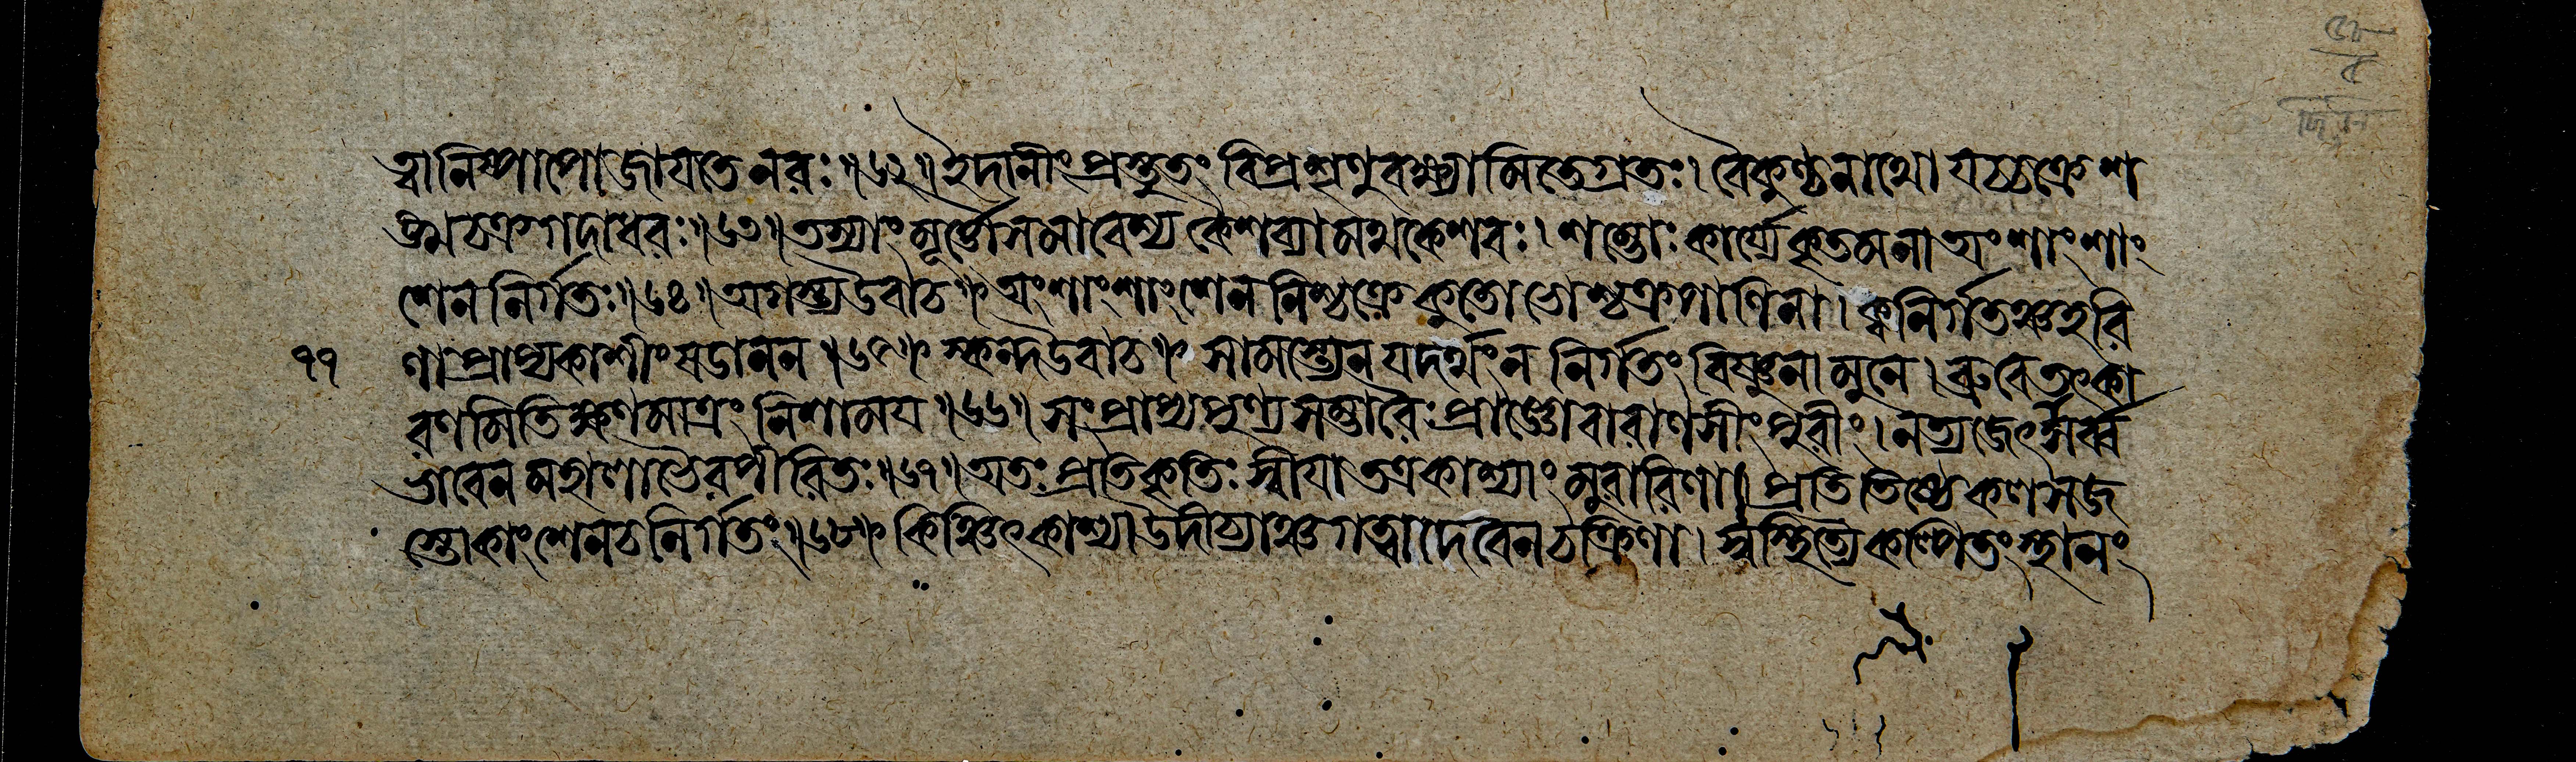 ত্বা নিষ্পাপো জাযতে নরঃ॥৬২॥ ইদানীং প্রস্তুতং বিপ্র শৃণু বক্ষ্যামি তেগ্রতঃ। বৈকুণ্ঠনাথো যচ্চক্রে শ
ঙ্খচক্রগদাধরঃ॥৬৩॥ তস্যাং মূর্ত্তৌ সমাবেশ্য কৈশব্যামথ কেশবঃ। শম্ভোঃ কার্য্যে কৃতমনা অংশাংশাং
শেন নির্গতঃ॥৬৪॥ অগস্ত্য উবাচ॥ অংশাংশাংশেন নিশ্চক্রে কুতো ভোশ্চক্রপাণিনা। ক্ব নির্গতঞ্চ হরি
ণা প্রাপ্য কাশীং ষডানন॥৬৫॥ স্কন্দ উবাচ॥ সামস্ত্যেন যদর্থং ন নির্গতং বিষ্ণুনা মুনে। ব্রুবে তৎকা
৭৭
রণমিতি ক্ষণমাত্রং নিশাময॥৬৬॥ সংপ্রাপ্য পুণ্যসম্ভারৈঃ প্রাজ্ঞো বারাণসীং পুরীং। ন ত্যজেৎ সর্ব্ব
ভাবেন মহালাভৈরপীরিতঃ॥৬৭॥ অতঃ প্রতিকৃতিঃ স্বীযা তত্র কাশ্যাং মুরারিণা। প্রতিতিষ্ঠে কলসজ
স্তোকাংশেন চ নির্গতং॥৬৮॥ কিঞ্চিৎ কাশ্যা উদীচ্যাঞ্চ গত্বা দেবেন চক্রিণা। স্বস্থিত্যৈ কল্পিতং স্থানং